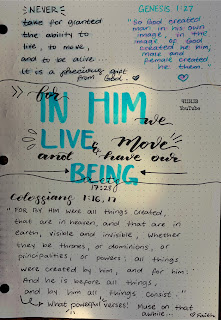 NEVER
take for granted
the ability to
live, to move,
and to be alive...
it is a precious gift
from God.
GENESIS 1:27
"So God created
man in his own
image, in the
image of God
created he him;
male and
female created
he them."
for
IN HIM we
LIVE & Move
and have our
BEING
Acts
17:28
YouTube
Colossians 1:16,17
"FOR by HIM were all things created,
that are in heaven, and that are in
earth, visible and invisible, whether
they be thrones, or dominions, or
principalities, or powers: all things
were created by him, and for him:
And he is before all things,
and by him all things consist."
What powerful verses! Muse on that
awhile...